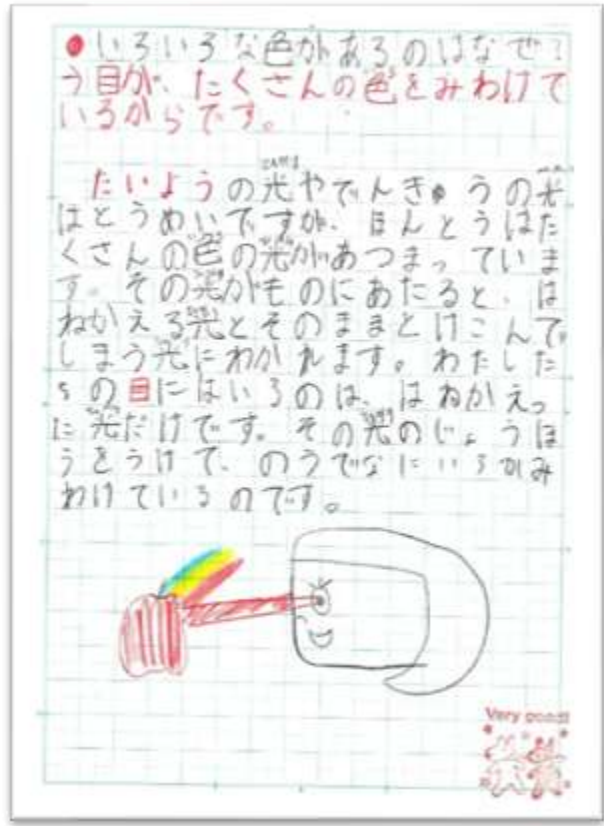 ●いろいろな色があるのはなぜ?
う目が、たくさんの色をみわけて
いるからです。
たいようの光やでんきゅうの光
はとうめいですが、ほんとうはた
くさんの色の光があつまってていま
す。その光がものにあたると、は
ねかえる光とそのままとけこんで
しまう光にわかれます。わたした
ちの目にはいるのは、はねかえっ
た光だけです。その光のじょうほ
うをうけて、のうでなにいろかみ
わけているのです。
Very good!